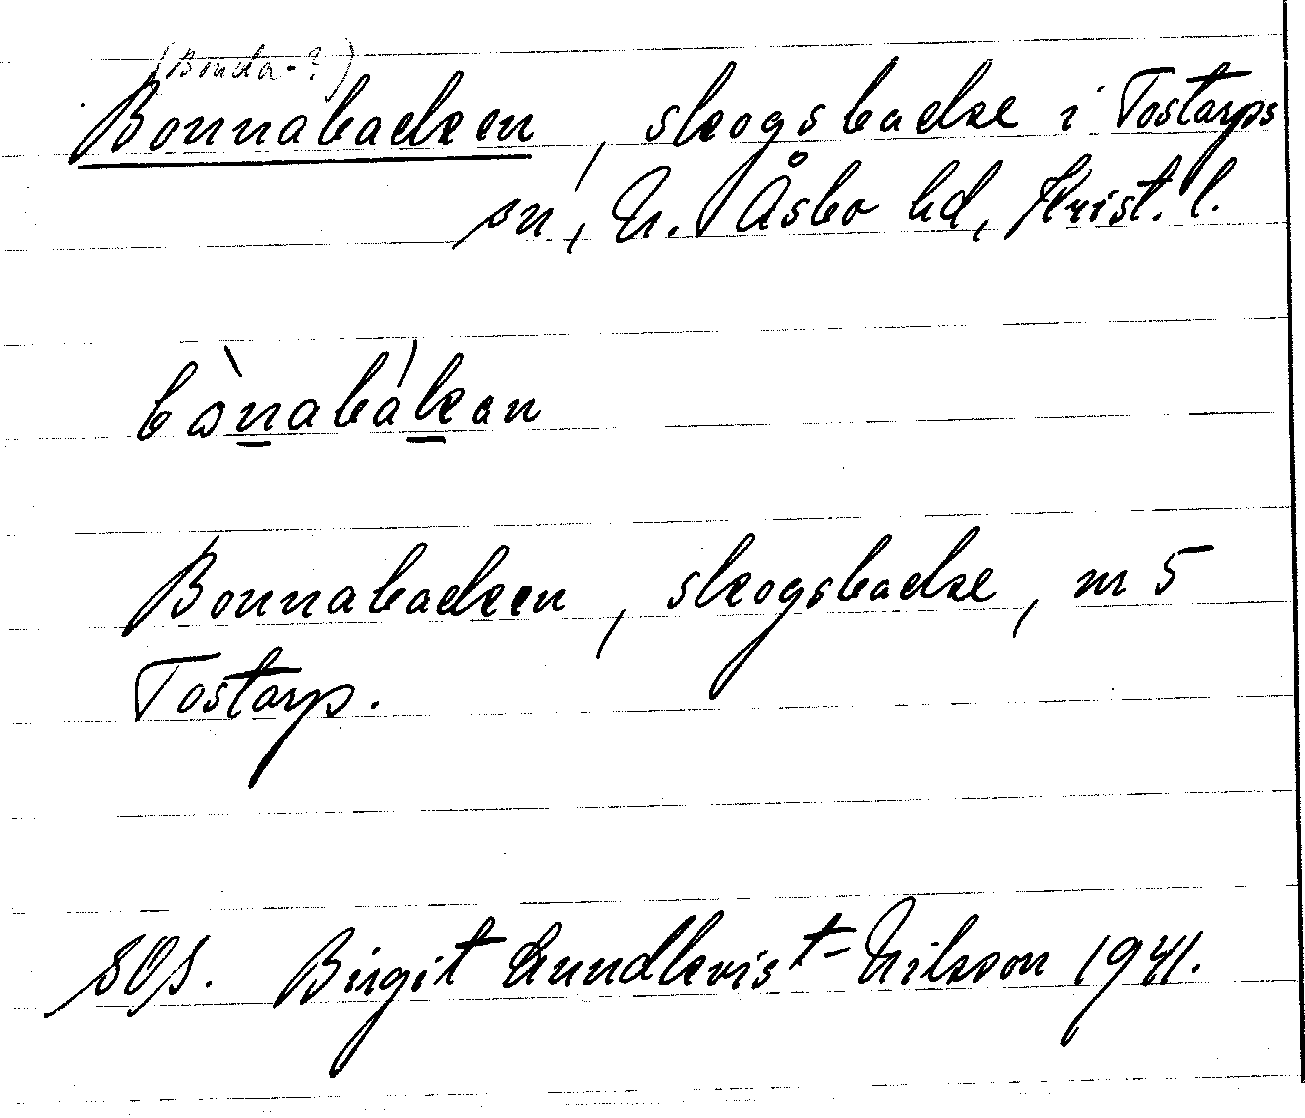 (Bonda-?)
Bonnabacken, skogsbacke i Tostarps
sn, N. Åsbo hd, Krist. l.
bònabákan
Bonnabacken, skogsbacke, m 5
Tostarp.
SOS. Birgit Lundkvist-Nilsson 1941.